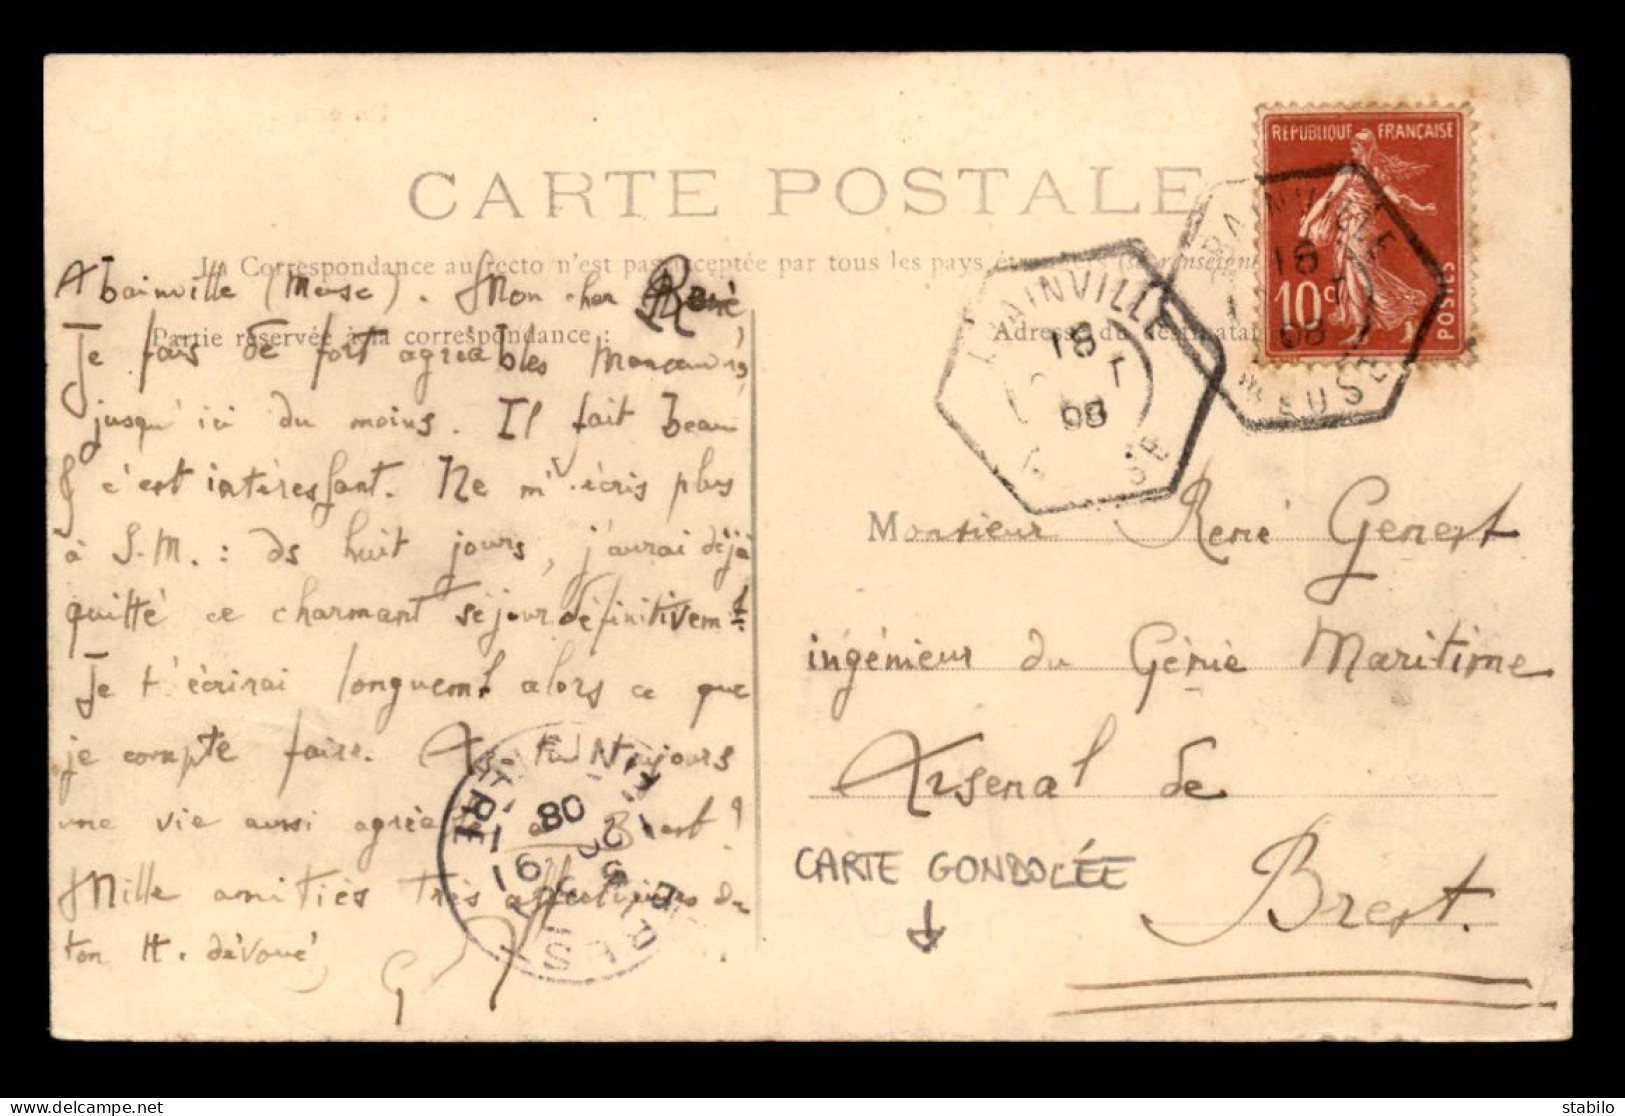 CARTE POSTALE
La Correspondance au recto n'est pas acceptée par tous les pays
Partie réservée à la correspondance :
Abainville (Meuse). Mon cher René
Je fais de fort agréables manoeuvres
jusqu'ici du moins. Il fait beau
& c'est intéressant. Ne m'écris plus
à S.M. : ds huit jours, j'aurai déjà
quitté ce charmant séjour définitivemt.
Je t'écrirai longuemt alors ce que
je compte faire. As-tu toujours
une vie aussi agréable à Brest ?
Mille amitiés très affectueuses de
ton tt dévoué,
G
REPUBLIQUE FRANÇAISE
10c
POSTES
ABAINVILLE
18
08
MEUSE
ABAINVILLE
18
08
Monsieur René Genest
ingénieur du Génie Maritime
Arsenal de
Brest.
CARTE GONDOLÉE
08
stabylo